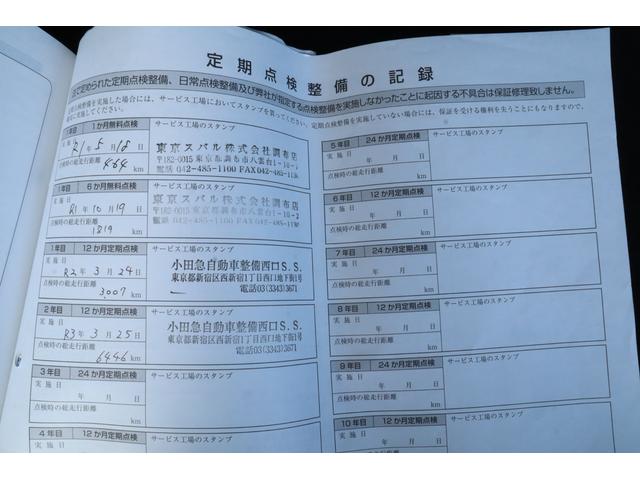 定期点検整備の記録
法で定められた定期点検整備、日常点検整備及び弊社が指定する点検整備を実施しなかったことに起因する不具合は保証修理致しません。
点検整備を実施した場合には、サービス工場においてスタンプを貰ってください。定期点検整備を実施していない場合には、保証を受ける権利を失うこともありますので、
実施してください。
1年目 1か月無料点検 サービス工場のスタンプ
R1年 5月 18日
点検時の総走行距離
464 km
東京スバル株式会社調布店
〒182-0015 東京都調布市八雲台1-10-
電話 042-485-1100 FAX 042-485-113
1年目 6か月無料点検 サービス工場のスタンプ
実施日
R1年 10月 19日
点検時の総走行距離
1819 km
東京スバル株式会社調布店
〒182-0015 東京都調布市八雲台1-10-2
電話 042-485-1100 FAX 042-485-11
1年目 12か月定期点検 サービス工場のスタンプ
実施日
R2年 3月 24日
点検時の総走行距離
3,007 km
小田急自動車整備西口S.S.
東京都新宿区西新宿1丁目西口地下街1号
電話03(3343)3671
2年目 12か月定期点検 サービス工場のスタンプ
実施日
R3年 3月 25日
点検時の総走行距離
6446 km
小田急自動車整備西口S.S.
東京都新宿区西新宿1丁目西口地下街1号
電話03(3343)3671
3年目 24か月定期点検 サービス工場のスタンプ
実施日
年 月 日
点検時の総走行距離
km
4年目 12か月定期点検 サービス工場のスタンプ
実施日
年 月 日
5年目 24か月定期点検 サービス工場のスタンプ
実施日
年 月 日
点検時の総走行距離
km
6年目 12か月定期点検 サービス工場のスタンプ
実施日
年 月 日
点検時の総走行距離
km
7年目 24か月定期点検 サービス工場のスタンプ
実施日
年 月 日
点検時の総走行距離
km
8年目 12か月定期点検 サービス工場のスタンプ
実施日
年 月 日
点検時の総走行距離
km
9年目 24か月定期点検 サービス工場のスタンプ
実施日
年 月 日
点検時の総走行距離
km
10年目 12か月定期点検 サービス工場のスタンプ
実施日
年 月 日